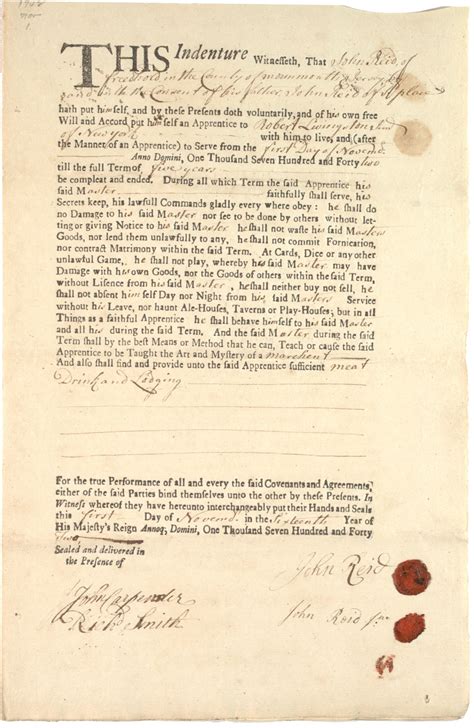 1742
Nov
1
THIS Indenture Witnesseth, That John Reid of
freehold in the County of monmouth Jersey by
and with the Consent of his father John Reid of place
hath put himself, and by these Presents doth voluntarily, and of his own free
Will and Accord put himself an Apprentice to Robert Livingston
of New york with him to live, and (after
the Manner of an Apprentice) to Serve from the first Day of Novemr
Anno Domini, One Thousand Seven Hundred and Forty two
till the full Term of five years
be compleat and ended. During all which Term the said Apprentice his
said Master faithfully shall serve, his
Secrets keep, his lawfull Commands gladly every where obey: he shall do
no Damage to his said Master nor see to be done by others without let-
ting or giving Notice to his said Master he shall not waste his said Masters
Goods, nor lend them unlawfully to any, he shall not commit Fornication,
nor contract Matrimony within the said Term. At Cards, Dice or any other
unlawful Game he shall not play, whereby his said Master may have
Damage with his own Goods, nor the Goods of others within the said Term,
without Lisence from his said Master, he shall neither buy nor sell, he
shall not absent himself Day nor Night from his said Masters Service
without his Leave, nor haunt Ale-Houses, Taverns or Play-Houses; but in all
Things as a faithful Apprentice he shall behave himself to his said Master
and all his during the said Term. And the said Master during the said
Term shall by the best Means or Method that he can, Teach or cause the said
Apprentice to be Taught the Art and Mystery of a marchent
And also shall find and provide unto the said Apprentice sufficient meat
Drink and Lodging
For the true Performance of all and every the said Covenants and Agreements,
either of the said Parties bind themselves unto the other by these Presents. In
Witness whereof they have hereunto interchangeably put their Hands and Seals
this first Day of Novemr in the Sixteenth Year of
His Majesty's Reign Annoq; Domini, One Thousand Seven Hundred and Forty
Two
Sealed and delivered in
the Presence of
John Reid
John Carpender
Richd Smith
John Reid
8